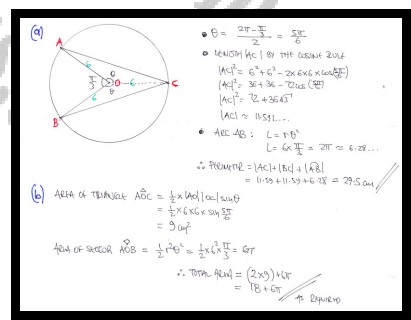 (a)
A
B
C
O
6
6
6
π/3
θ
θ
• θ = (2π - π/3)/2 = 5π/6
• LENGTH |AC| BY THE COSINE RULE
|AC|² = 6² + 6² - 2×6×6×cos(5π/6)
|AC|² = 36 + 36 - 72cos(5π/6)
|AC|² = 72 + 36√3
|AC| ≈ 11.591...
• ARC AB: L = rθᶜ
L = 6×π/3 = 2π ≈ 6.28...
∴ PERIMETER = |AC| + |BC| + |AB|
= 11.59 + 11.59 + 6.28 ≈ 29.5 cm
(b) AREA OF TRIANGLE AOC = ½×|AO||OC| sinθ
= ½×6×6×sin 5π/6
= 9 cm²
AREA OF SECTOR AOB = ½r²θᶜ = ½×6²×π/3 = 6π
∴ TOTAL AREA = (2×9) + 6π
= 18 + 6π
AS REQUIRED